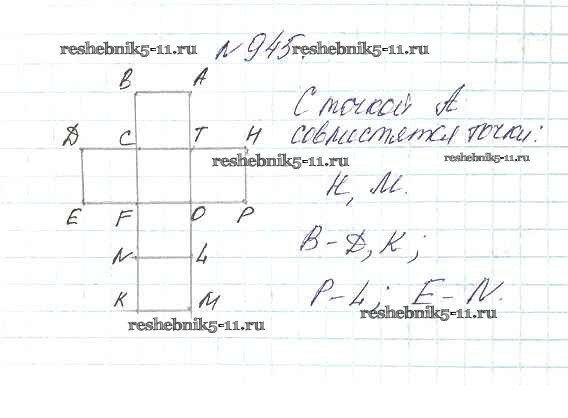 reshebnik5-11.ru № 945. reshebnik5-11.ru
B A
С точкой А
D C T H совместятся точки:
reshebnik5-11.ru reshebnik5-11.ru
H, M.
E F O P
B - D, K;
N L
P - L; E - N.
K M
reshebnik5-11.ru reshebnik5-11.ru